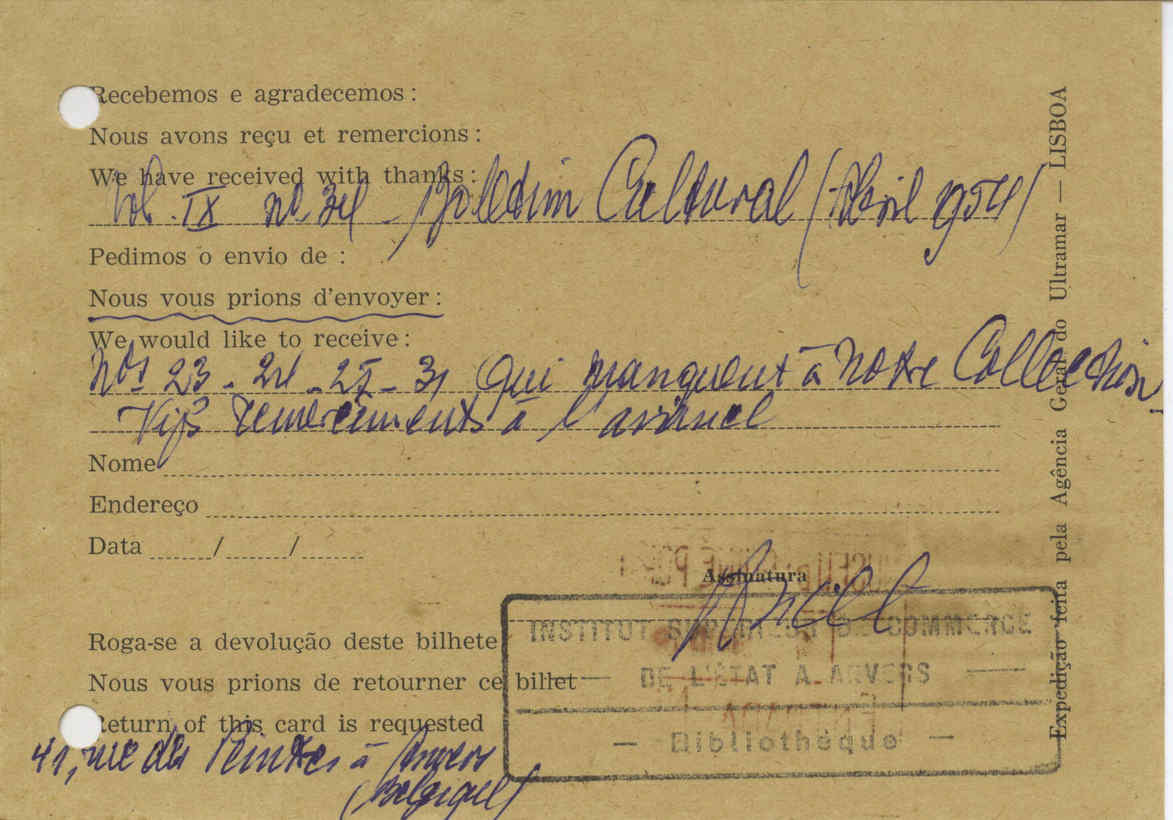 Recebemos e agradecemos :
Nous avons reçu et remercions :
We have received with thanks :
Vol. IX nº 34 - Boletim Cultural (Abril 1954)
Pedimos o envio de :
Nous vous prions d'envoyer :
We would like to receive :
Nos 23 - 24 - 25 - 31 qui manquent à notre Collection.
Vifs remerciements à l'avance
Nome
Endereço
Data / /
Assinatura
Roga-se a devolução deste bilhete
Nous vous prions de retourner ce billet
Return of this card is requested
INSTITUT SUPERIEUR DE COMMERCE
DE L'ÉTAT A ANVERS
— Bibliothèque —
41, rue des Peintres à Anvers
(Belgique)
Expedição feita pela Agência Geral do Ultramar — LISBOA